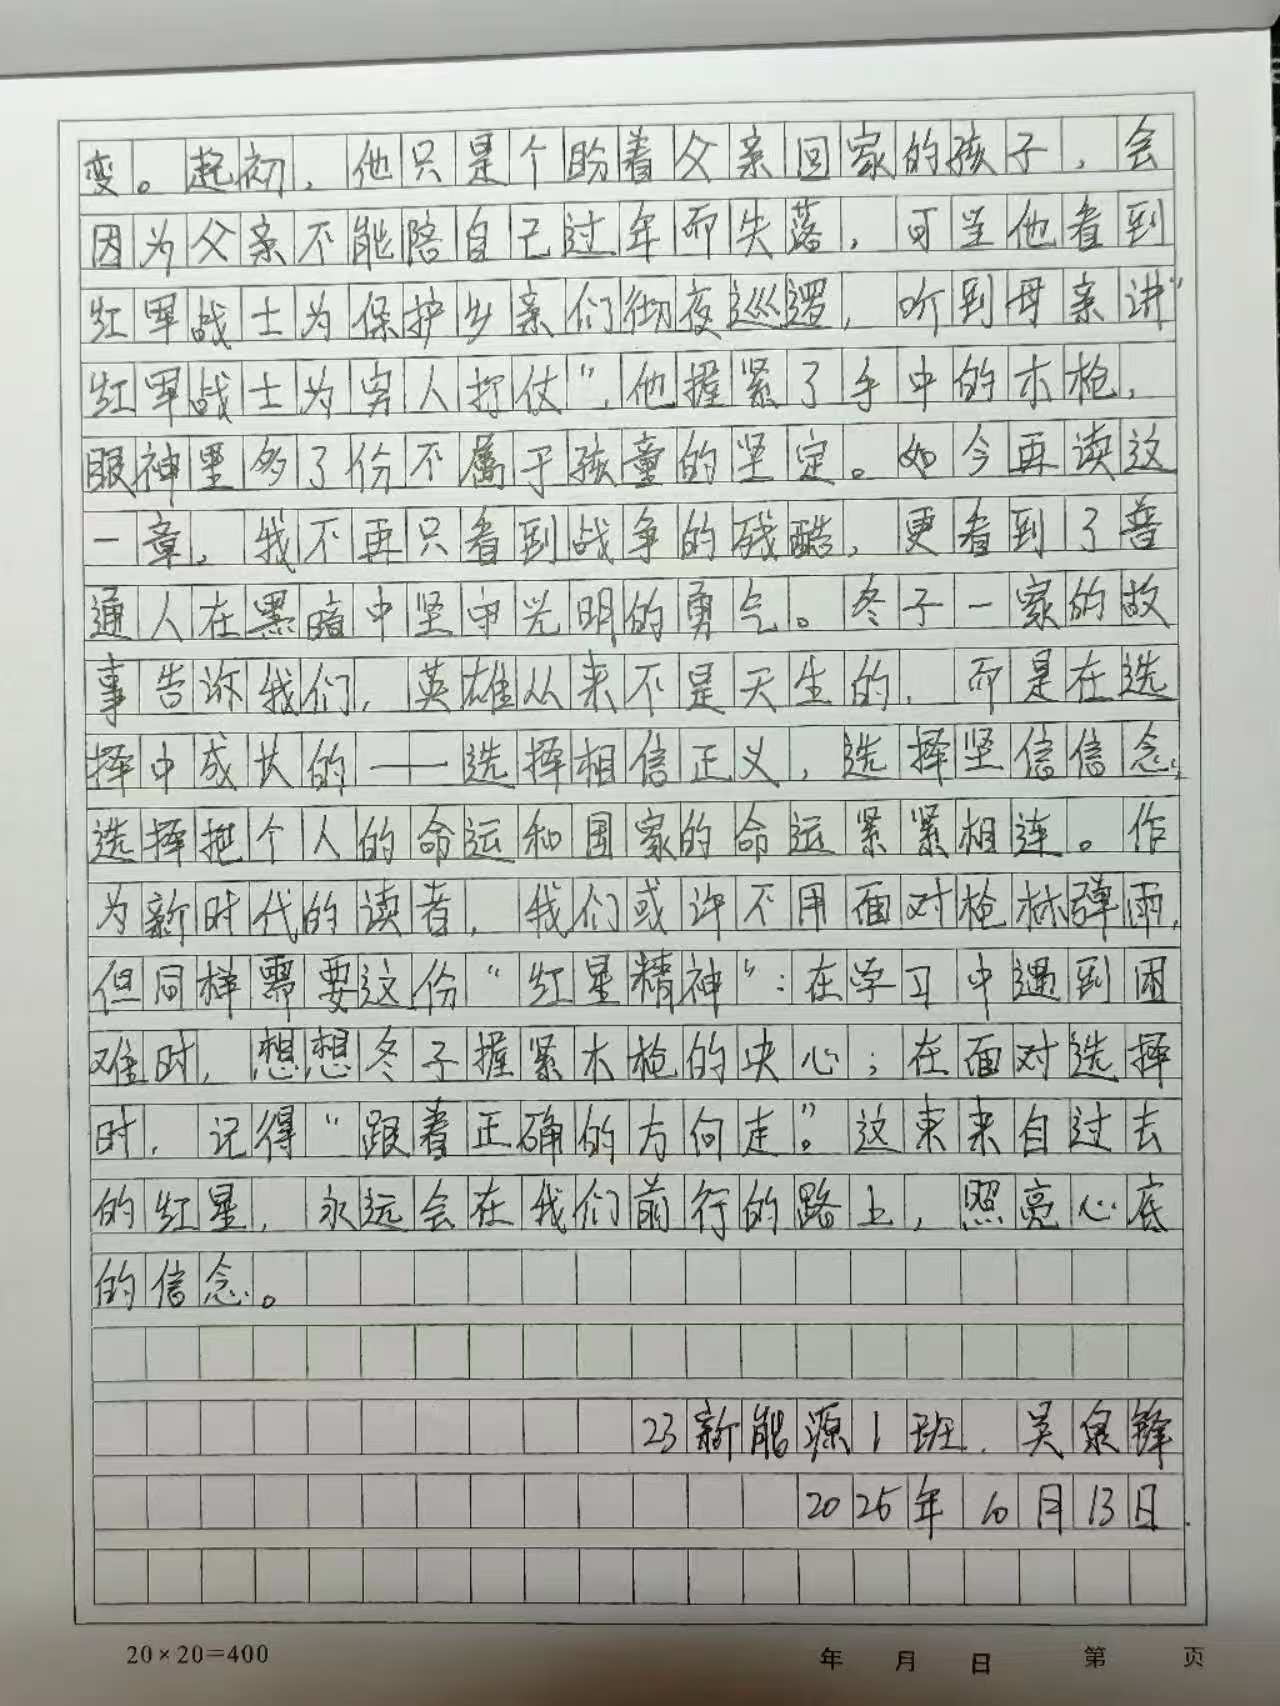 变。起初，他只是个盼着父亲回家的孩子，会
因为父亲不能陪自己过年而失落，可当他看到
红军战士为保护乡亲们彻夜巡逻，听到母亲讲“
红军战士为穷人打仗”，他握紧了手中的木枪，
眼神里多了份不属于孩童的坚定。如今再读这
一章，我不再只看到战争的残酷，更看到了普
通人在黑暗中坚守光明的勇气。冬子一家的故
事告诉我们，英雄从来不是天生的，而是在选
择中成长的——选择相信正义，选择坚信信念，
选择把个人的命运和国家的命运紧紧相连。作
为新时代的读者，我们或许不用面对枪林弹雨，
但同样需要这份“红星精神”：在学习中遇到困
难时，想想冬子握紧木枪的决心；在面对选择
时，记得“跟着正确的方向走”。这束来自过去
的红星，永远会在我们前行的路上，照亮心底
的信念。
23新能源1班．吴泉锋
2025年10月13日．
20×20=400 年 月 日 第 页